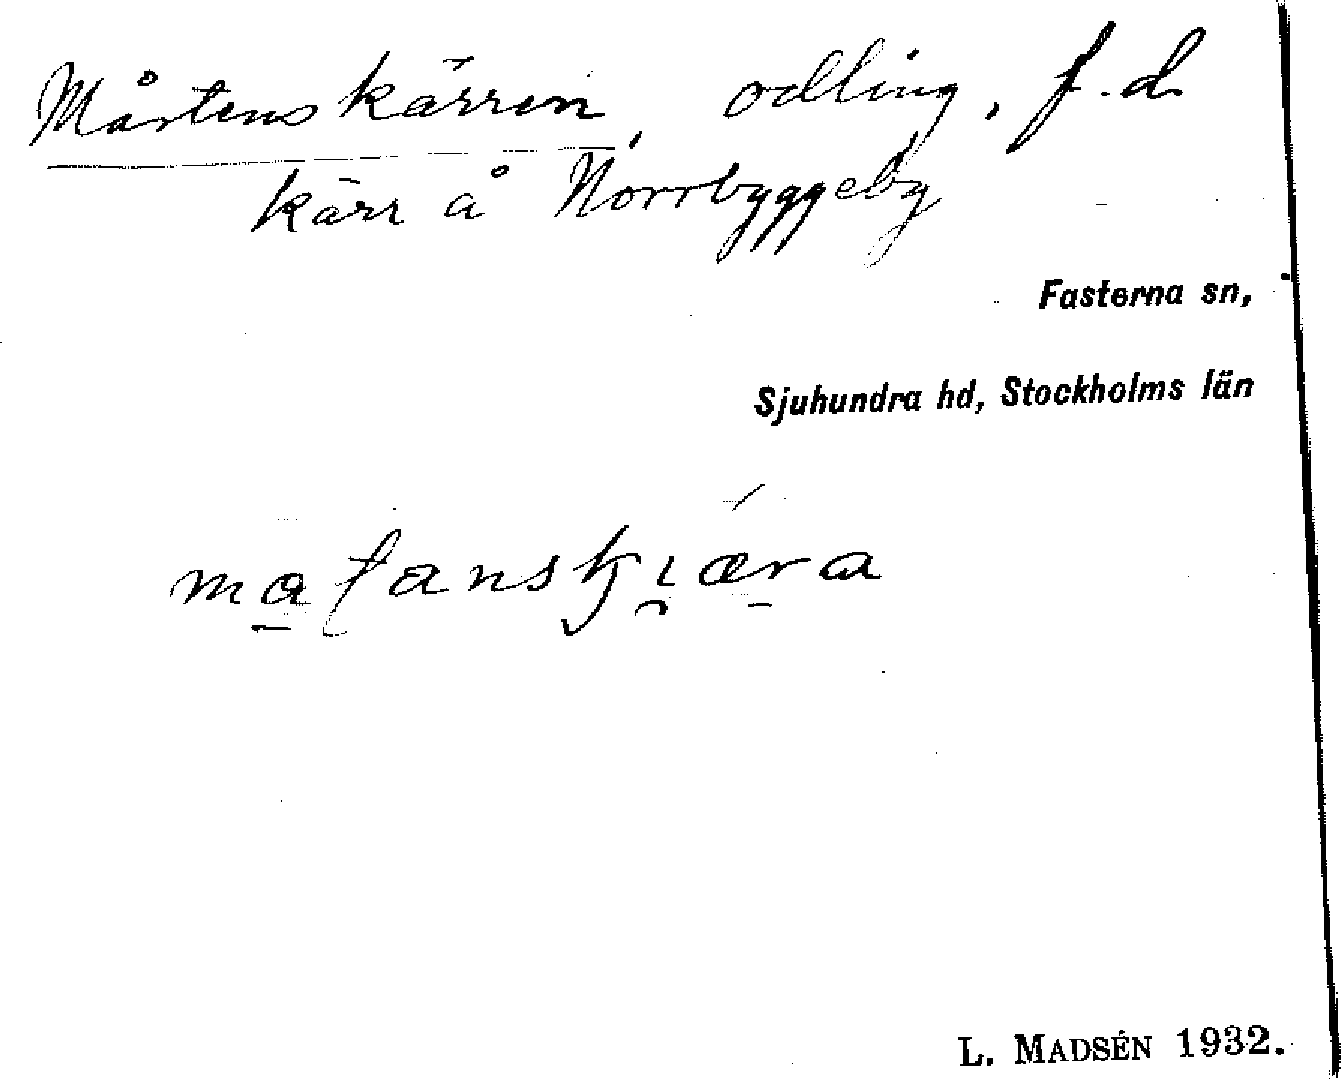 Mårtenskärren, odling, f.d.
kärr å Norrbyggeby
Fasterna sn,
Sjuhundra hd, Stockholms län
L. MADSÉN 1932.